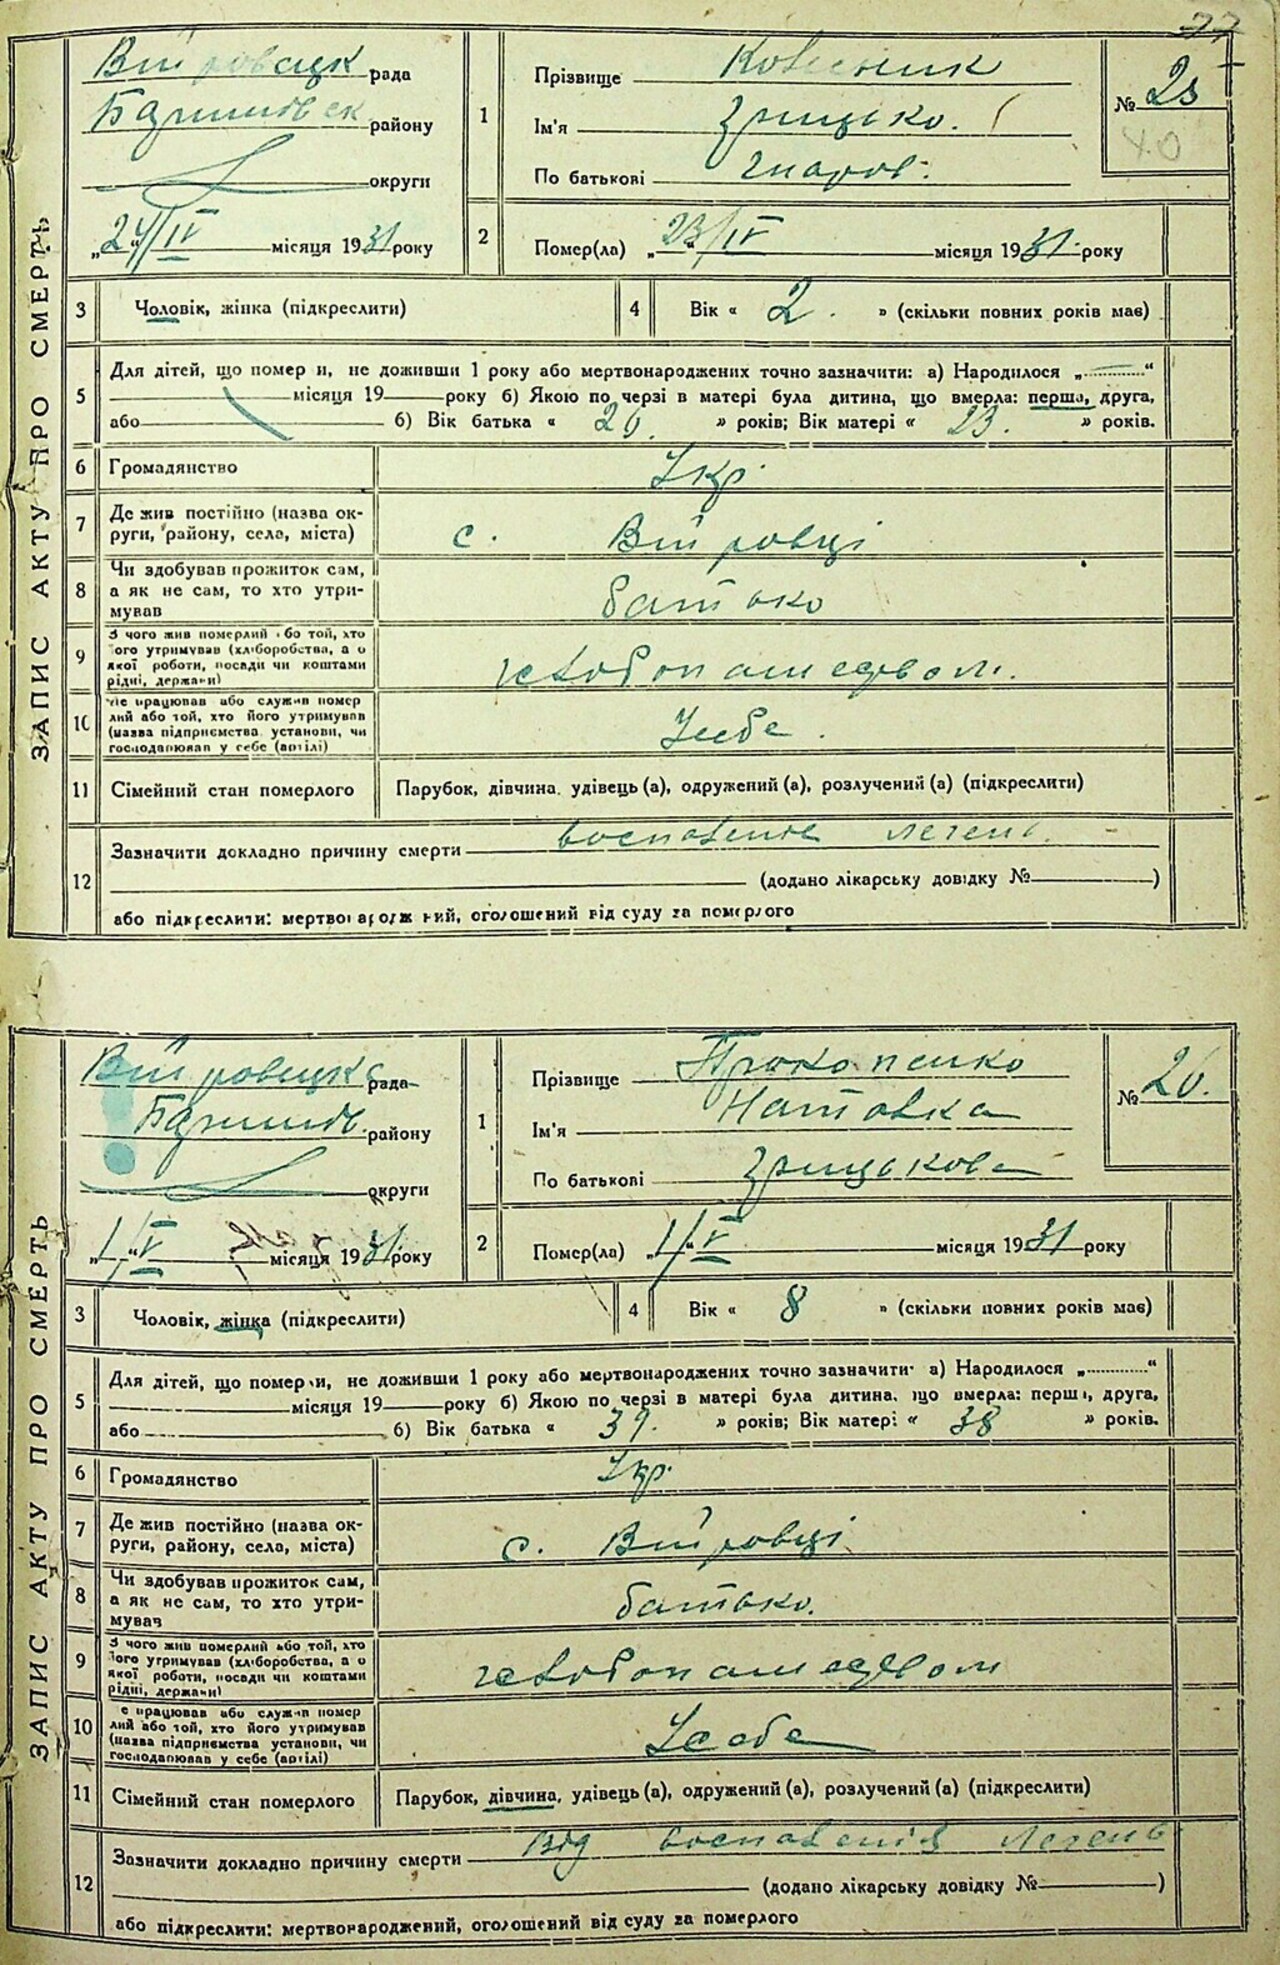 77
ЗАПИС АКТУ ПРО СМЕРТЬ
рада
району
округи
„24“/IV місяця 1931 року
1
Прізвище
Ім'я Грицько.
По батькові
№ 25
40
2
Помер(ла) „23“/IV місяця 1931 року
3 Чоловік, жінка (підкреслити)
4 Вік « 2. » (скільки повних років має)
5
Для дітей, що помер и, не доживши 1 року або мертвонароджених точно зазначити: а) Народилося „ “
місяця 19 року б) Якою по черзі в матері була дитина, що вмерла: перша, друга,
або б) Вік батька « 26. » років; Вік матері « 23. » років.
6 Громадянство Укр.
7 Де жив постійно (назва ок-
руги, району, села, міста) с. Війтовці
8 Чи здобував прожиток сам,
а як не сам, то хто утри-
мував батько
9 З чого жив померлий або той, хто
його утримував (хліборобства, а о
якої роботи, посади чи коштами
рідні, держави)
10 Де працював або служив помер
лий або той, хто його утримував
(назва підприємства установи, чи
господарював у себе (артілі) У себе.
11 Сімейний стан померлого Парубок, дівчина, удівець (а), одружений (а), розлучений (а) (підкреслити)
12
Зазначити докладно причину смерти воспаленіє легень.
(додано лікарську довідку № )
або підкреслити: мертвонароджений, оголошений від суду за померлого
ЗАПИС АКТУ ПРО СМЕРТЬ
рада
району
округи
„1“/V місяця 1931 року
1
Прізвище Прокопенко
Ім'я Наталка
По батькові Грицькова
№ 26.
2
Помер(ла) „1“/V місяця 1931 року
3 Чоловік, жінка (підкреслити)
4 Вік « 8 » (скільки повних років має)
5
Для дітей, що померли, не доживши 1 року або мертвонароджених точно зазначити: а) Народилося „ “
місяця 19 року б) Якою по черзі в матері була дитина, що вмерла: перша, друга,
або б) Вік батька « 39. » років; Вік матері « 38 » років.
6 Громадянство Укр.
7 Де жив постійно (назва ок-
руги, району, села, міста) с. Війтовці
8 Чи здобував прожиток сам,
а як не сам, то хто утри-
мував батько.
9 З чого жив померлий або той, хто
його утримував (хліборобства, а о
якої роботи, посади чи коштами
рідні, держави)
10 Де працював або служив помер
лий або той, хто його утримував
(назва підприємства установи, чи
господарював у себе (артілі) У себе
11 Сімейний стан померлого Парубок, дівчина, удівець (а), одружений (а), розлучений (а) (підкреслити)
12
Зазначити докладно причину смерти Від воспаленія легень
(додано лікарську довідку № )
або підкреслити: мертвонароджений, оголошений від суду за померлого